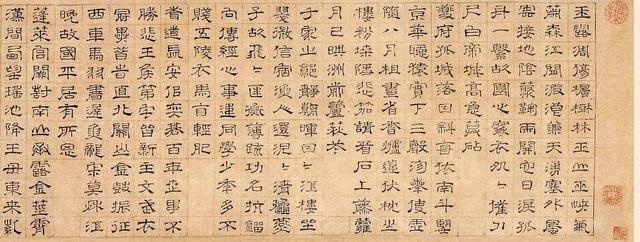 玉露凋傷楓樹林巫山巫峽氣
蕭森江間波浪兼天湧塞外風
雲接地陰叢菊兩開他日淚孤
舟一繫故園心寒衣處〻催刀
尺白帝城高急暮砧
夔府孤城落日斜每依南斗望
京華聽猿實下三聲淚奉使虛
隨八月槎畫省香爐違伏枕山
樓粉堞隱悲笳請看石上藤蘿
月已映洲前蘆荻花
千家山郭靜朝暉日〻江樓坐
翠微信宿漁人還汎〻清秋燕
子故飛〻匡衡疏功名
向傳經心事違同學少年多不
賤五陵衣馬自輕肥
聞道長安似弈棋百年世事不
勝悲王侯第宅皆新主文武衣
冠異昔時直北關山金鼓振征
西車馬羽書遲魚龍寂寞秋江
冷故國平居有所思
蓬萊宮闕對南山承露金莖霄
漢間西望瑤池降王母東來紫